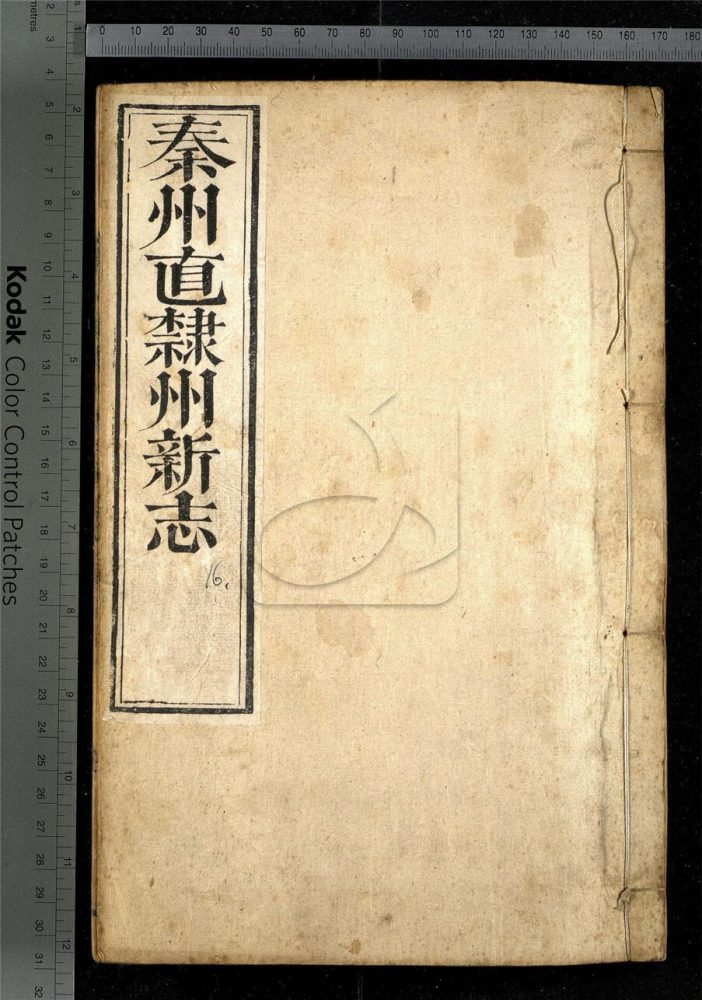 秦州直隷州新志
16.
Kodak Color Control Patches
0 10 20 30 40 50 60 70 80 90 100 110 120 130 140 150 160 170 180
metres
2 3 4 5 6 7 8 9 10 11 12 13 14 15 16 17 18 19 20 21 22 23 24 25 26 27 28 29 30 31 32
1 2 3 4 5 6 7 8 9 10 11 12